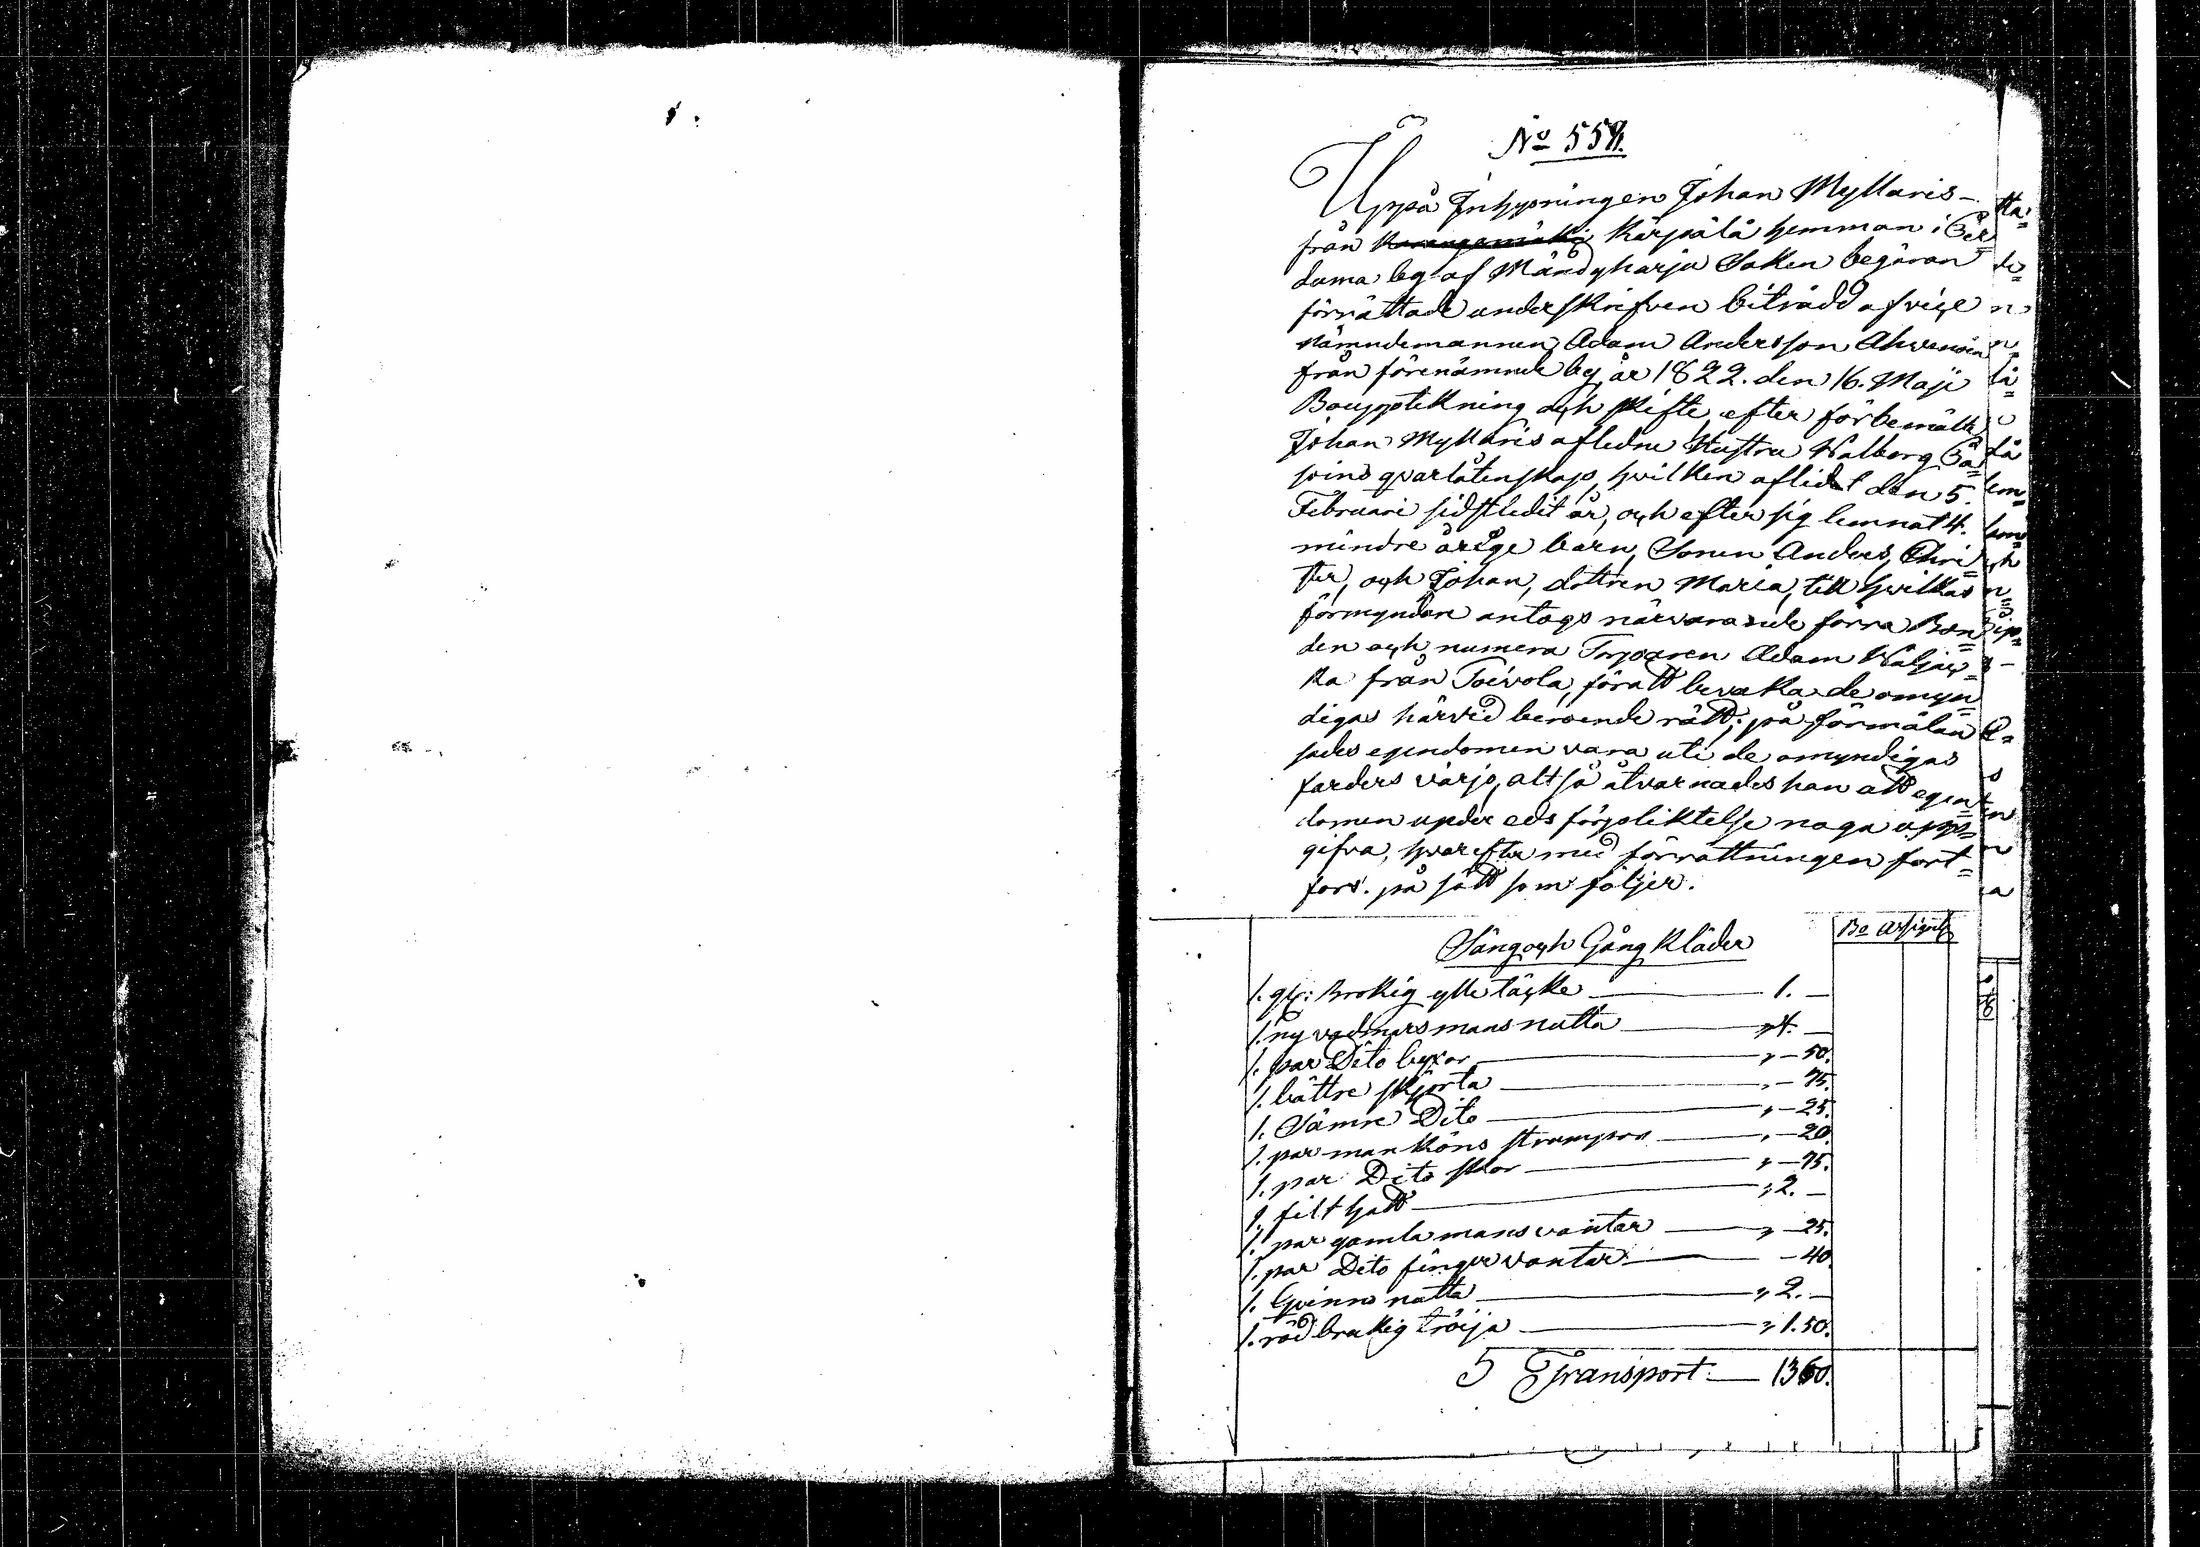 No 558.
Uppå Inhysningen Johan Myllaris
från Kärpälä hemman i Per
duma by af Mändyharju Soken begäran
förrättade underskrifven biträdd af vice
nämndemannen Adam Andersson Ahvenain
från förenämnde by, år 1822. den 16. Maji
Bouppteckning och skifte efter förbemälte
Johan Myllaris afledne Hustru Walborg
qvarlåtenskap, hvilken aflidit den 5.
Februari sidstledit år, och efter sig lemnat 4.
mindre årige barn, Sonen Anders, Chri=
ster, och Johan, dottren Maria, till hvilkas
förmyndare antogs närvarande förra Bon=
den och numera Torparen Adam
ka från Toivola, föratt bevaka de omyn=
digas härvid beroende rätt; på förmälan
sades egendomen vara uti de omyndigas
farders värjo, altså åtvarnades han att egen=
domen under eds förpliktelse noga upp=
gifva, hvarefter med förrättningen fort=
fors. på sätt som följer.
Säng och Gång Kläder
Bo Assignt
1. gl: Brokig ylle täcke 1. —
1. ny vadmars mans natta " 4. —
1. par Dito byxor " — 50.
1. bättre skjorta " — 75.
1. Sämre Dito " — 25.
1. par manköns strumpor " — 20.
1. par Dito skor " — 75.
1. filt hatt " 2. —
1. par gamla mans vantar " — 25.
1. par Dito finger vantar — 40
1. Qvinns natta " 2. —
1. röd brokig tröija " 1. 50.
Transport 13 60.